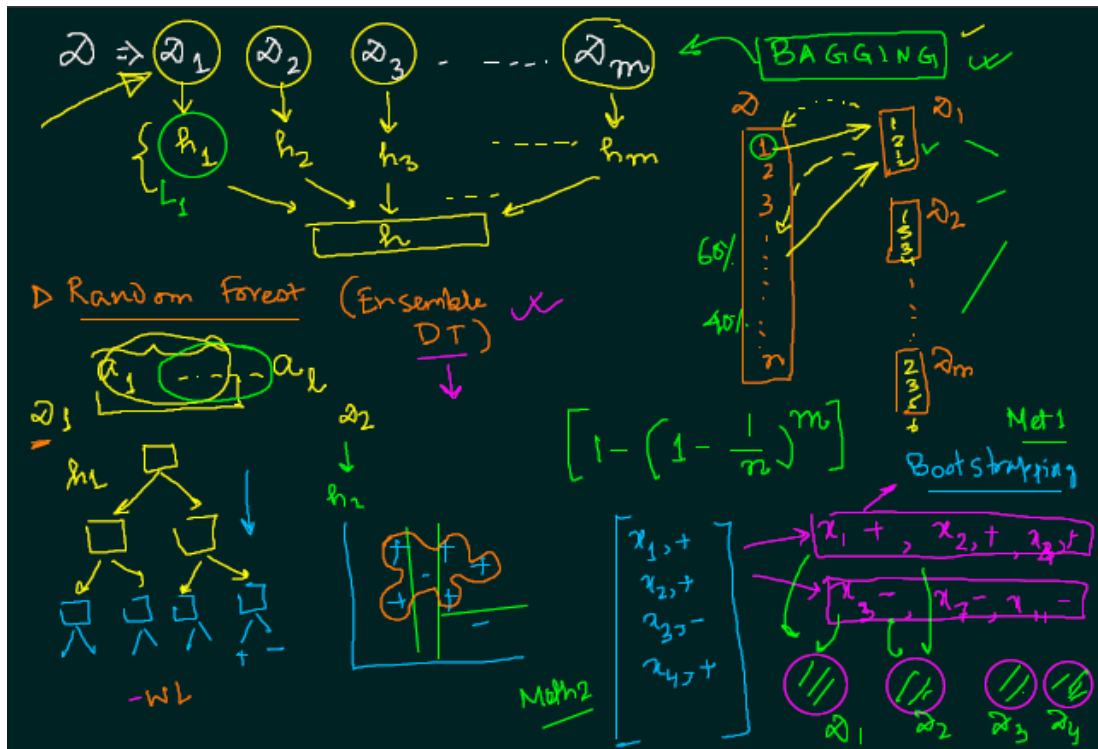 D ⇒ D1 D2 D3 - ..... Dm
BAGGING
h1 h2 h3 ------ hm
L1
h
D
1
2
3
n
60%
40%
D1
1
2
1
D2
1
5
3
4
Dm
2
3
5
▷ Random Forest (Ensemble
DT)
a1 ..... al
D1
h1
D2
h2
+ -
-WL
+ + +
-
+ +
-
[1 - (1 - 1/n)^m]
Met1
Bootstrapping
x1,+
x2,+
x3,-
x4,+
x1 +, x2,+, x2,+
x3 -, x7 -, x11 -
Meth2
D1 D2 D3 D4